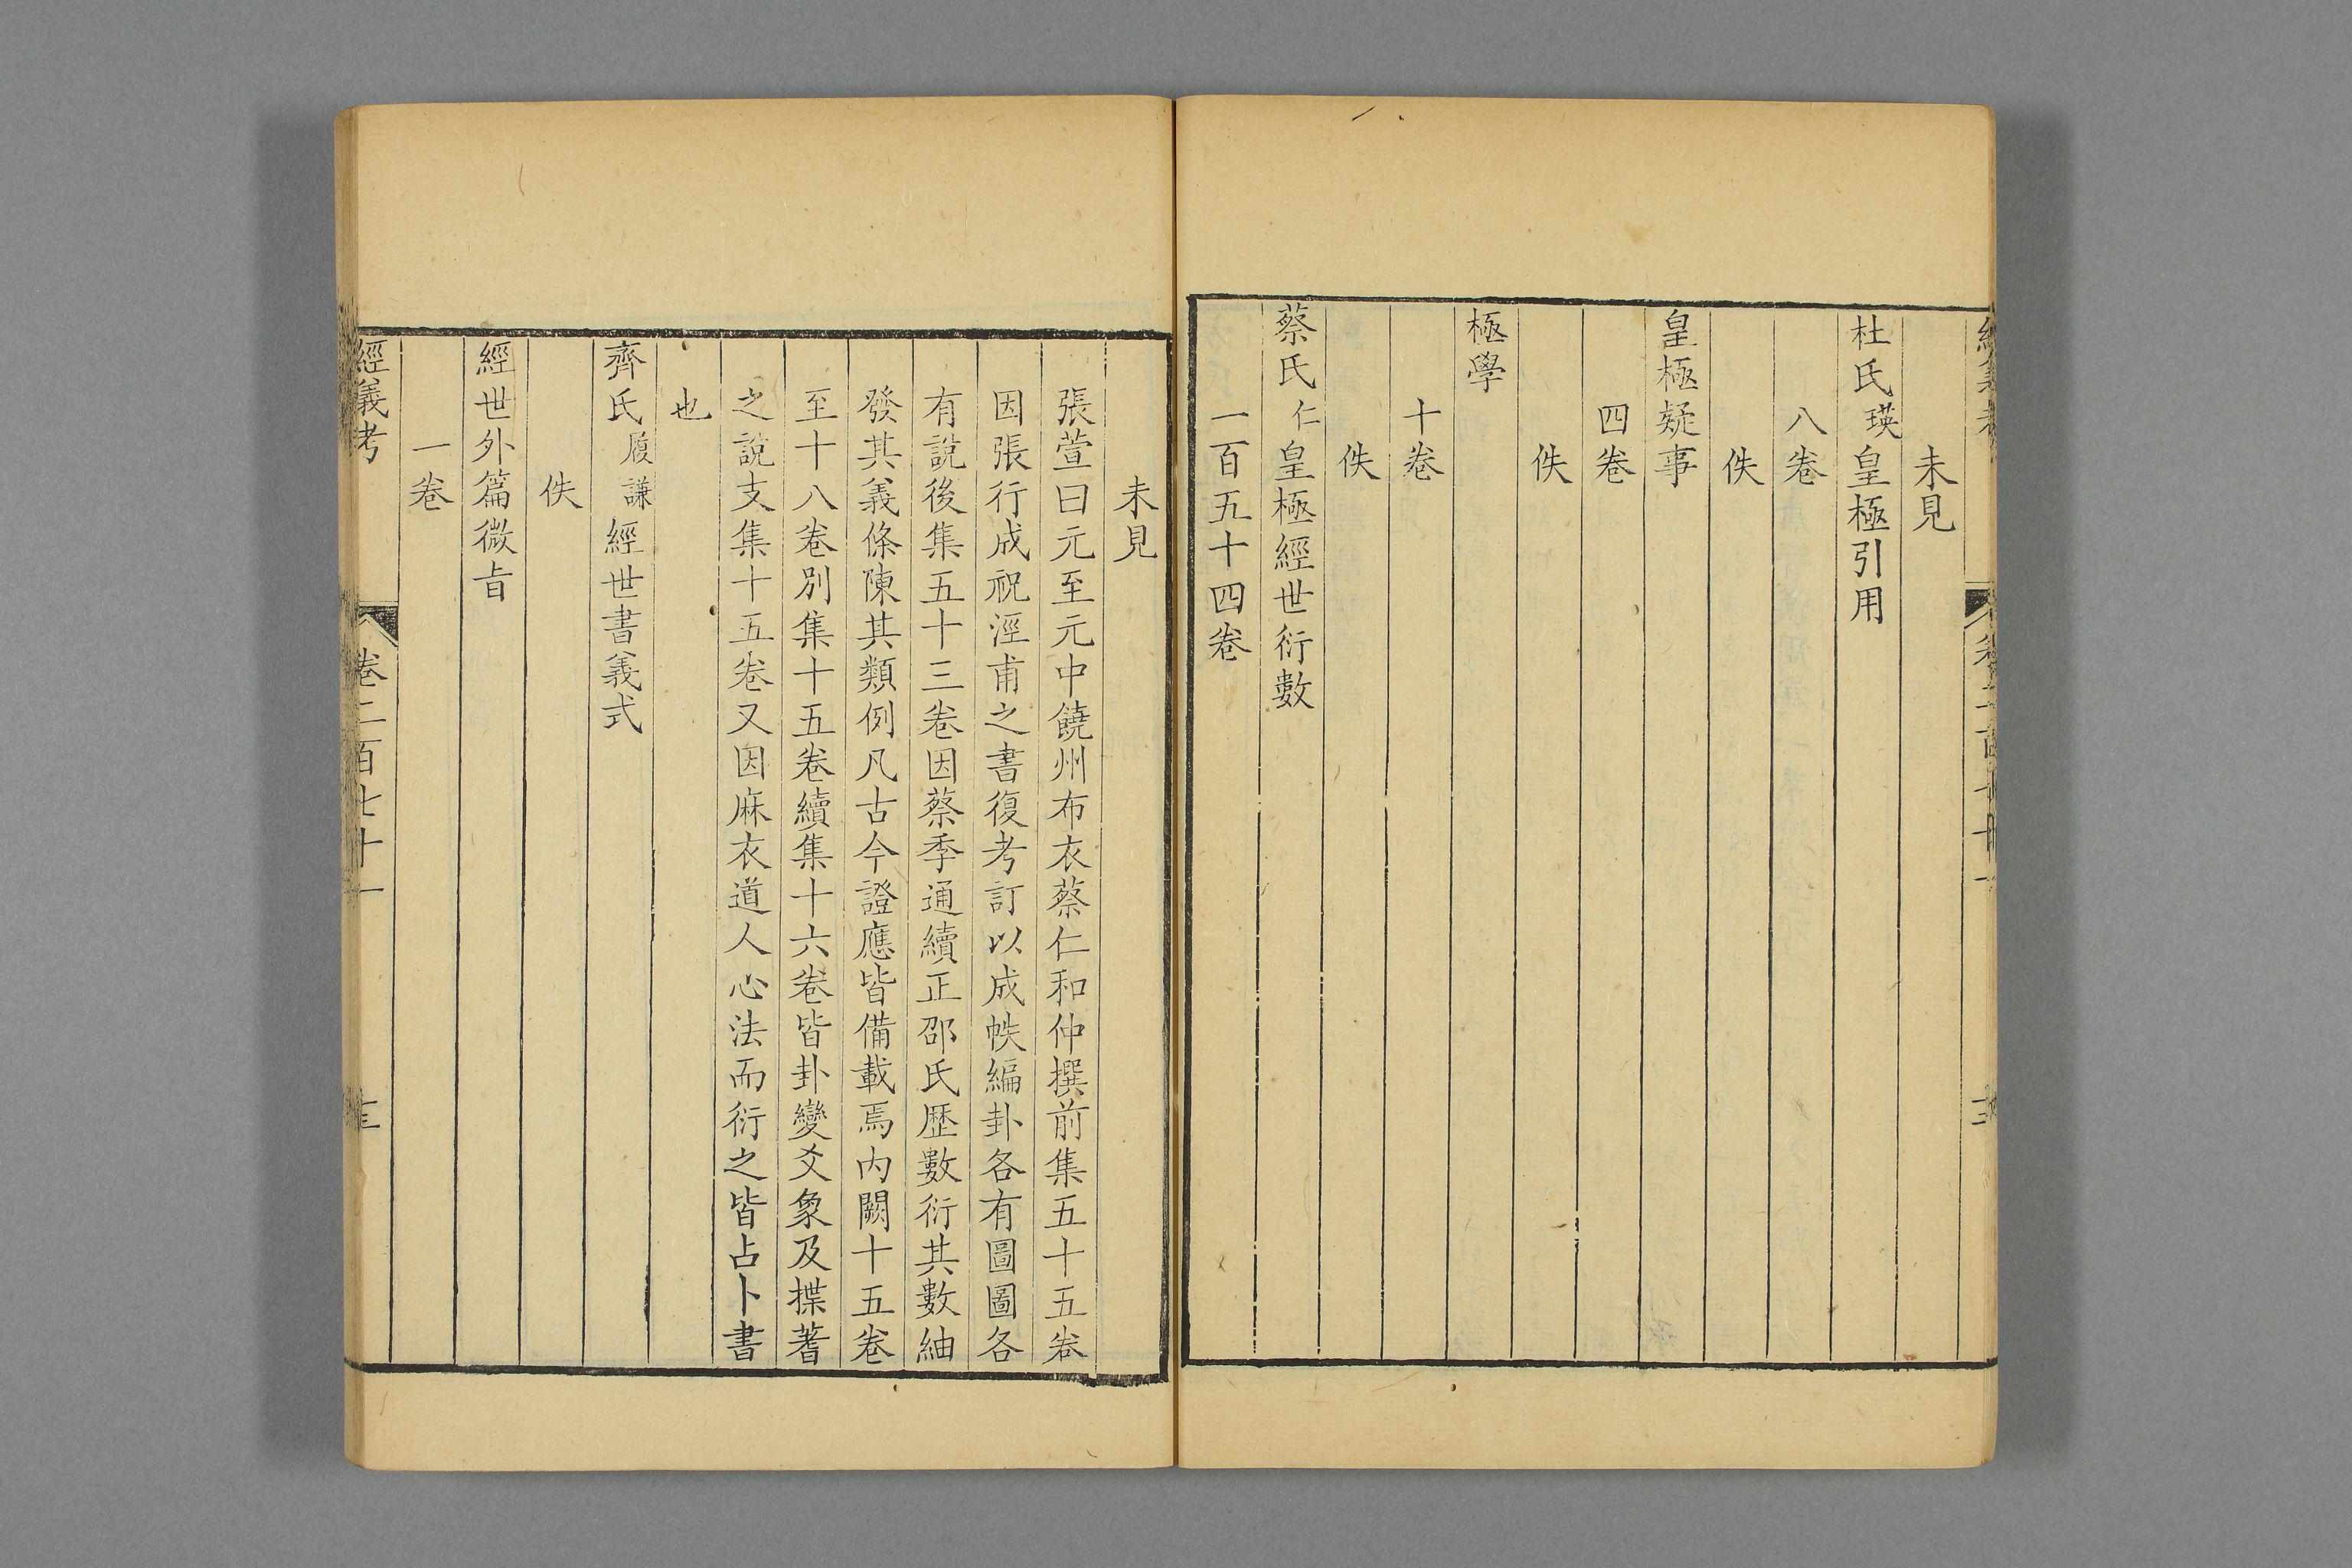 未見
杜氏瑛皇極引用
八卷
佚
皇極疑事
四卷
佚
極學
十卷
佚
蔡氏仁皇極經世衍數
一百五十四卷
未見
張萱曰元至元中饒州布衣蔡仁和仲撰前集五十五卷
因張行成祝涇甫之書復考訂以成帙編卦各有圖圖各
有說後集五十三卷因蔡季通續正邵氏歷數衍其數紬
發其義條陳其類例凡古今證應皆備載焉內闕十五卷
至十八卷別集十五卷續集十六卷皆卦變爻象及揲蓍
之說支集十五卷又因麻衣道人心法而衍之皆占卜書
也
齊氏履謙經世書義式
佚
經世外篇微旨
一卷
經義考 卷二百七十一